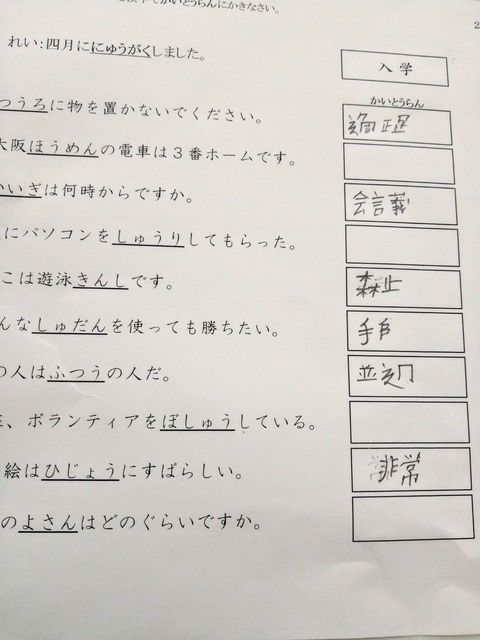 かいとうらんにかきなさい。
2
れい：四月ににゅうがくしました。
入学
かいとうらん
つうろに物を置かないでください。
大阪ほうめんの電車は３番ホームです。
いぎは何時からですか。
会言義
にパソコンをしゅうりしてもらった。
こは遊泳きんしです。
森止
んなしゅだんを使っても勝ちたい。
手
の人はふつうの人だ。
、ボランティアをぼしゅうしている。
絵はひじょうにすばらしい。
非常
のよさんはどのぐらいですか。